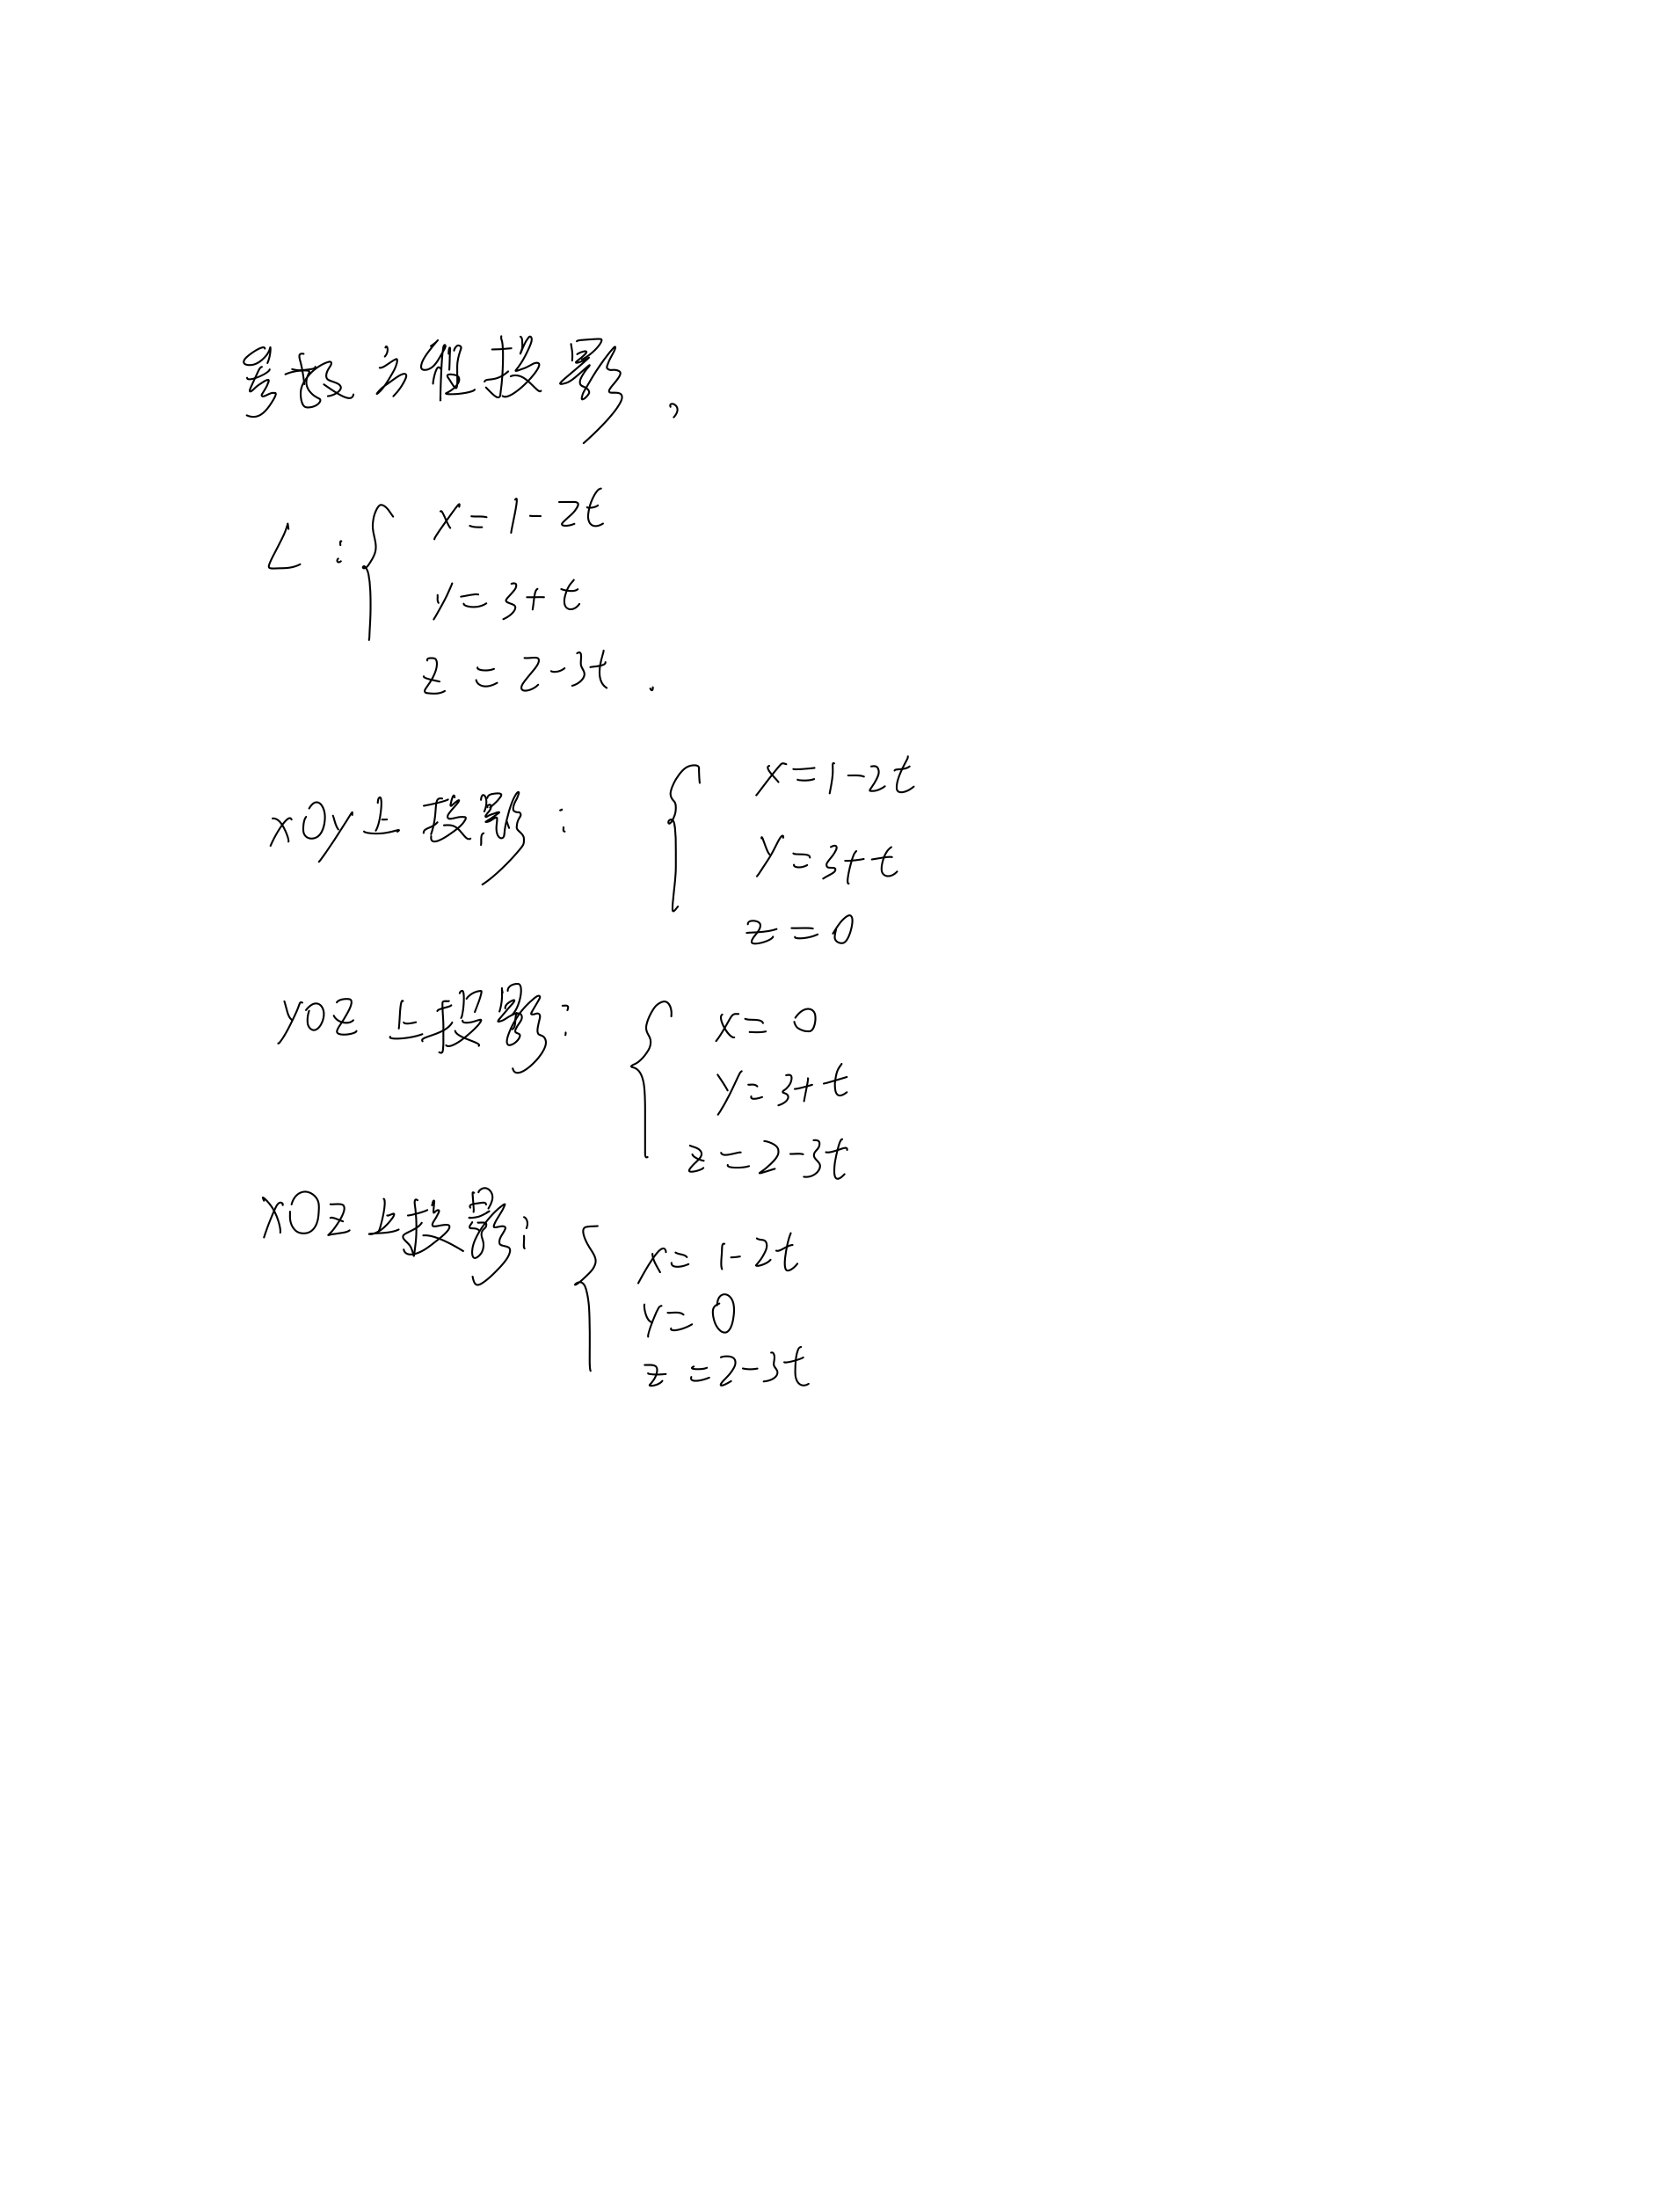 参数方程投影,
L:{ x=1-2t
y=3+t
z=2-3t.
xOy上投影: { x=1-2t
y=3+t
z=0
yOz上投影: { x=0
y=3+t
z=2-3t
xOz上投影: { x=1-2t
y=0
z=2-3t